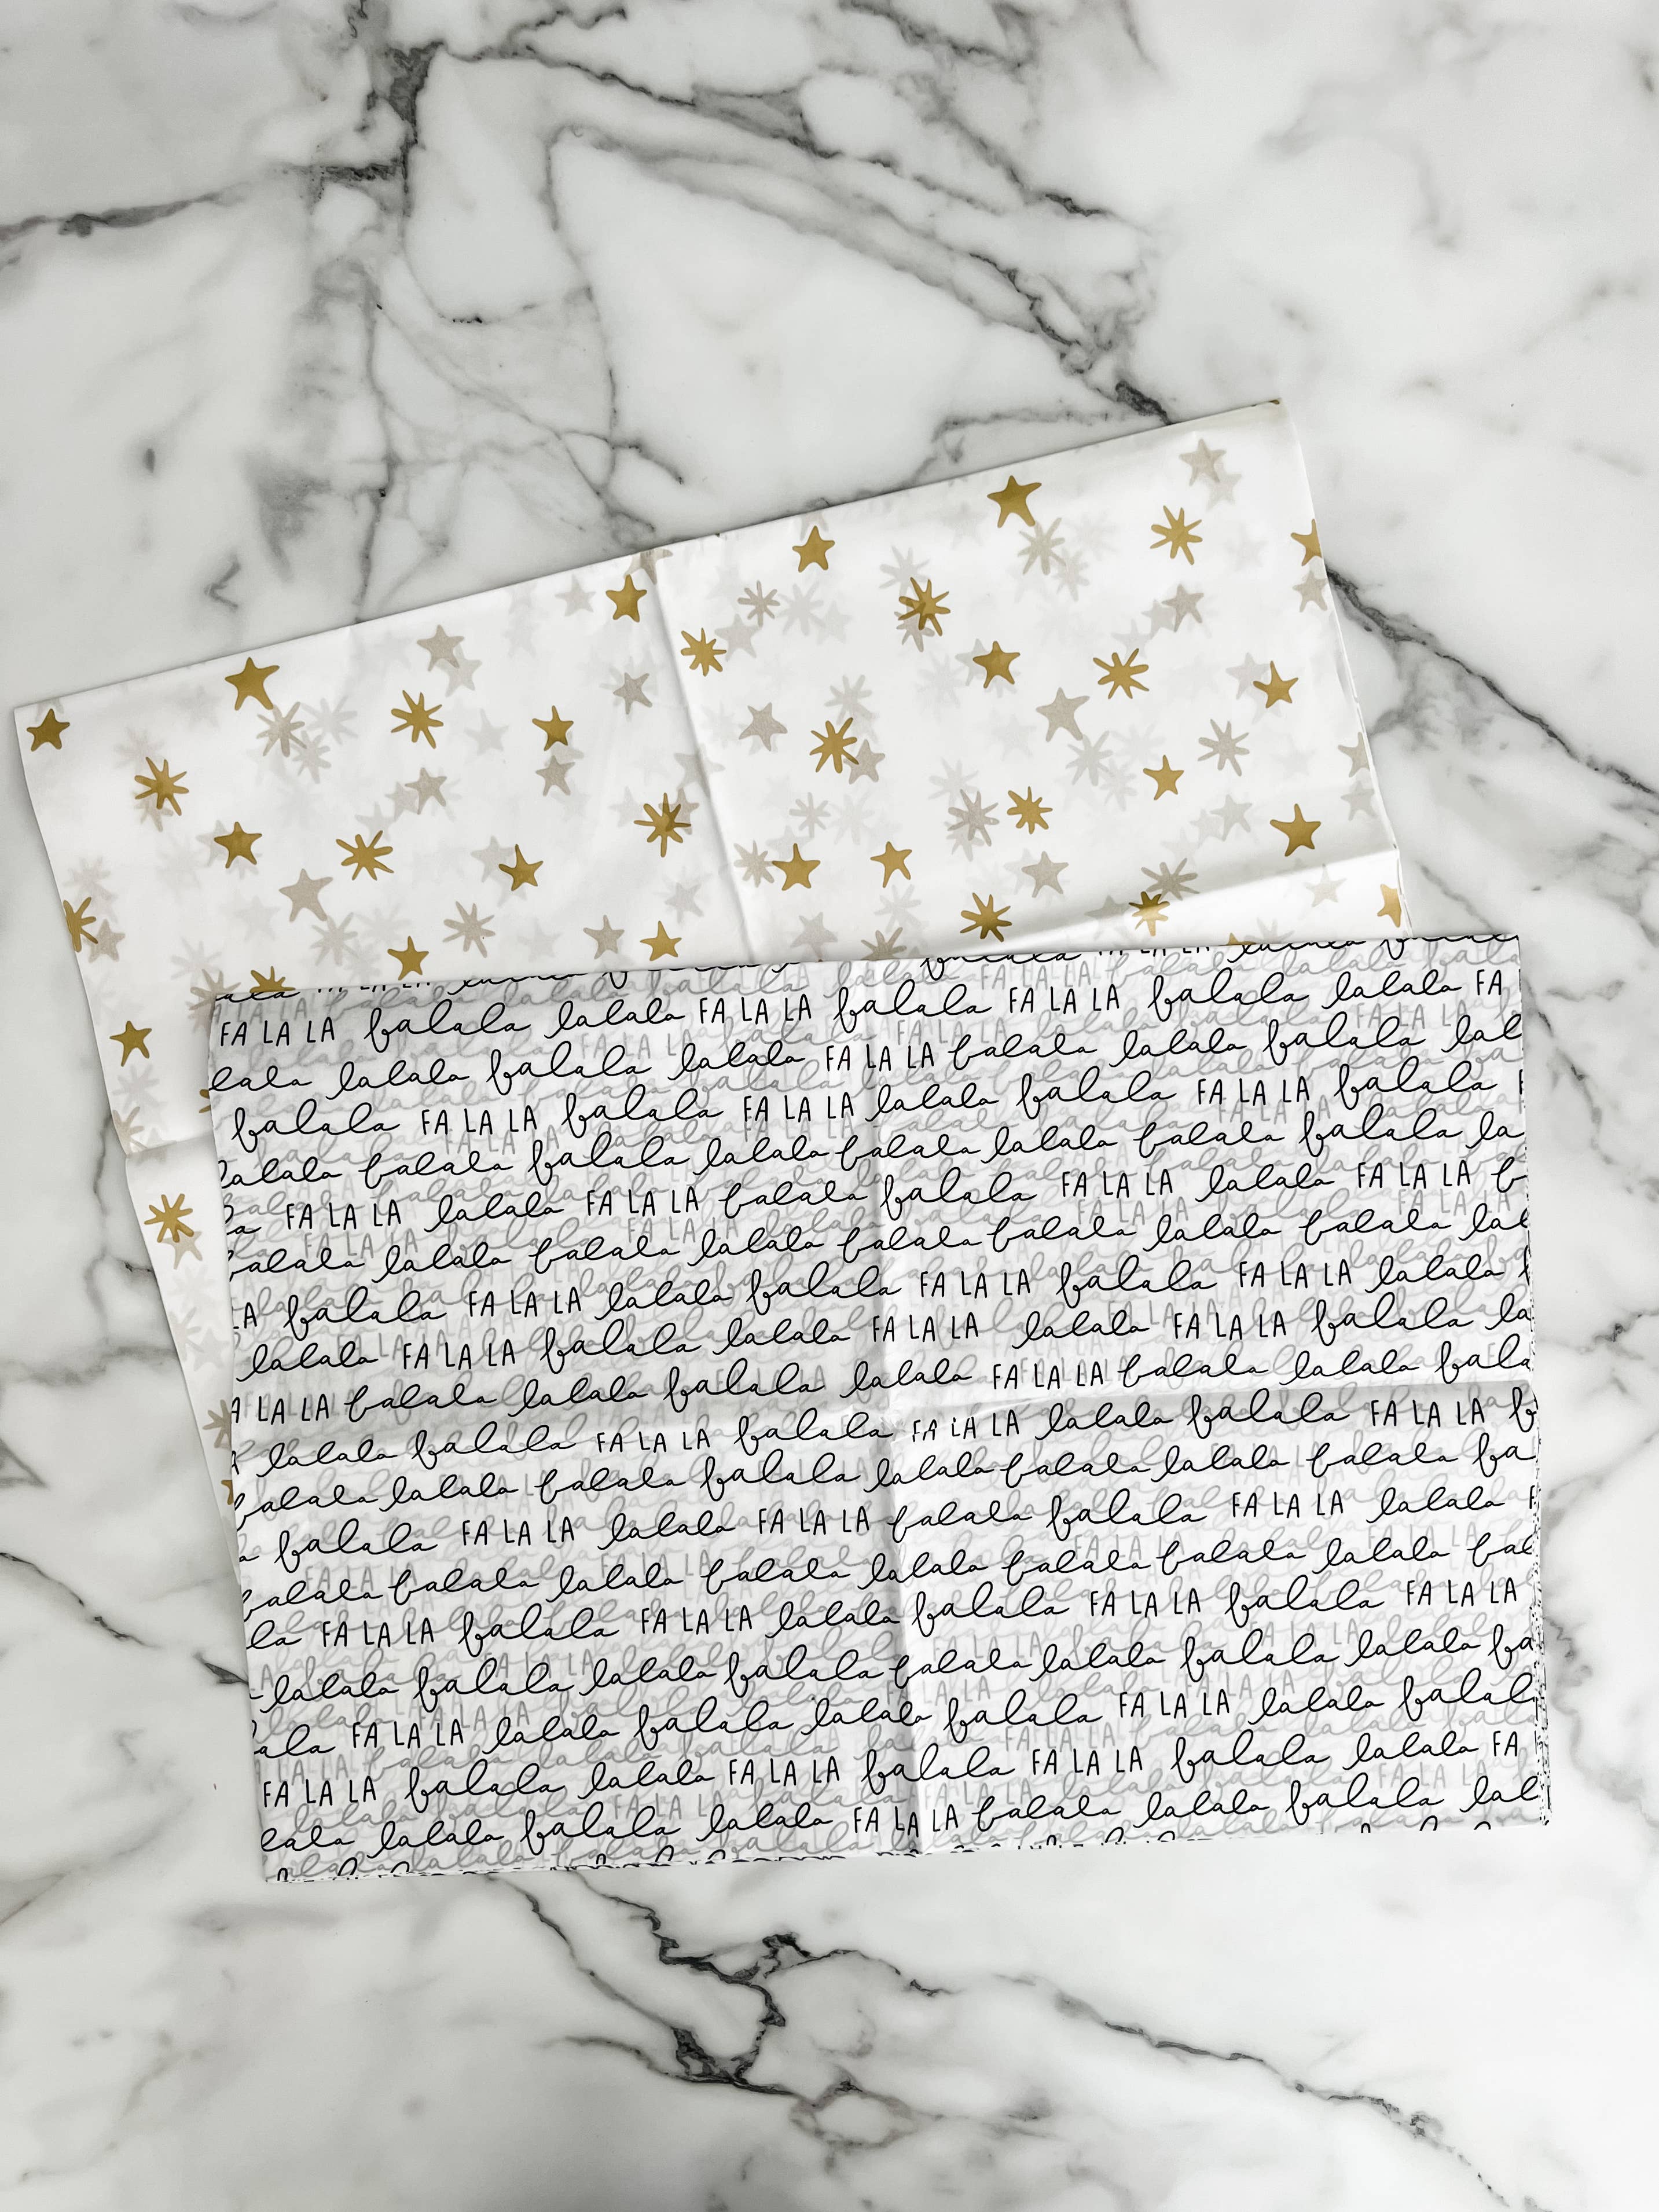 FA LA LA falala lalala FA LA LA falala FA LA LA falala lalala FA
lala lalala falala lalala FA LA LA falala lalala falala lal
falala FA LA LA falala FA LA LA lalala falala FA LA LA falala
alala falala falala lalala falala lalala falala falala la
a FA LA LA lalala FA LA LA falala falala FA LA LA lalala FA LA LA f
alala lalala falala lalala falala falala lalala falala lal
LA falala FA LA LA lalala falala FA LA LA falala FA LA LA lalala
lalala FA LA LA falala lalala FA LA LA lalala FA LA LA falala la
A LA LA falala lalala falala lalala FA LA LA falala lalala fala
lalala falala FA LA LA falala FA LA LA lalala falala FA LA LA f
alala lalala falala falala lalala falala lalala falala fa
a falala FA LA LA lalala FA LA LA falala falala FA LA LA lalala
alala falala lalala falala lalala falala falala lalala fal
la FA LA LA falala FA LA LA lalala falala FA LA LA falala FA LA LA
lalala falala lalala falala falala lalala falala lalala fa
ala FA LA LA lalala falala lalala falala FA LA LA lalala falal
FA LA LA falala lalala FA LA LA falala FA LA LA falala lalala FA
lala lalala falala lalala FA LA LA falala lalala falala lal